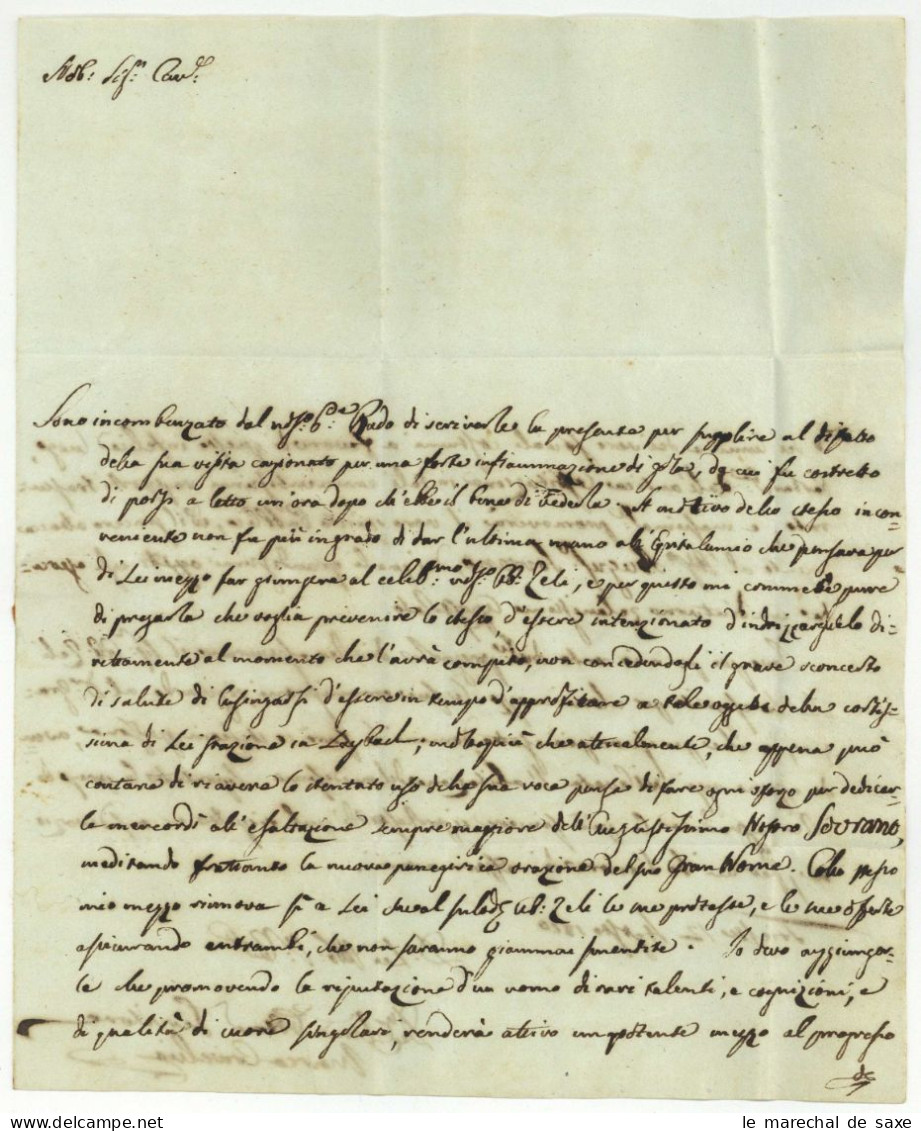 Nob: Sig.r Cav.e
Sono incombenzato dal nost.o di scriverle la presente per supplire al difetto
della sua visita cagionato per una forte infiammazione di gola, da cui fu costretto
di porsi a letto un'ora dopo ch'ebbe il bene di vederla. A motivo dello stesso incon-
veniente non fu più in grado di dar l'ultima mano all'Epitalamio che pensava per
di Lei mezzo far giungere al celeb.mo nost.o Zeli, e per questo mi commette pure
di pregarla che voglia prevenire lo stesso, d'essere intenzionato d'indrizzarglielo di-
rettamente al momento che l'avrà compito, non concedendogli il grave sconcerto
di salute di lusingarsi d'essere in tempo d'approfittare a tale oggetto della cortis-
sima di Lei stazione in Laybach; che attualmente, che appena può
contare di riavere lo stentato uso della sua voce pensa di fare ogni sforzo per dedicar-
le mercordì all'esaltazione sempre maggiore dell'Augustissimo Nostro Sovrano,
meditando frattanto la nuova panegirica orazione del suo Gran Nome. Collo stesso
mio mezzo rinnova sì a Lei che al sulod.o Zeli le sue proteste, e le sue offerte
assicurando entrambi, che non saranno giammai smentite. Io devo aggiunger-
le che promovendo la riputazione d'un uomo di rari talenti, e cognizioni, e
di qualità di cuore singolari, renderà attivo un potente mezzo al progresso
de
le marechal de saxe